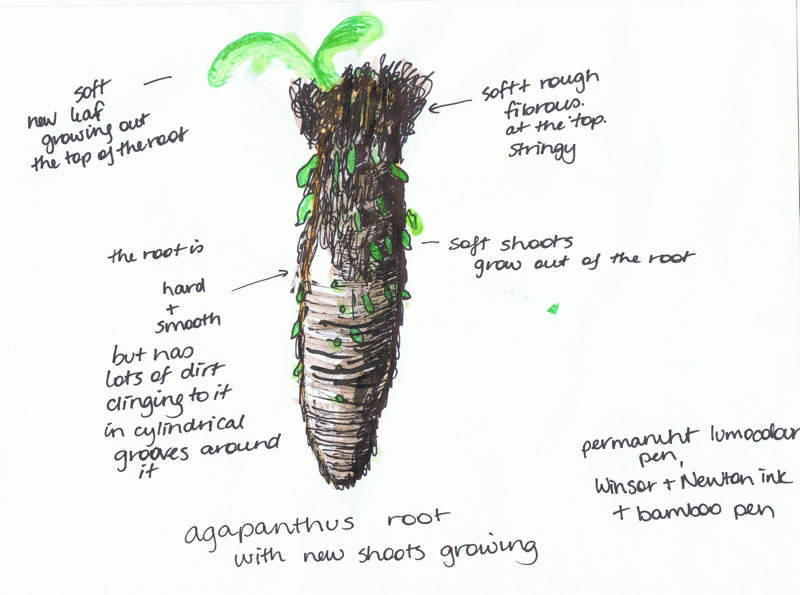 soft
new leaf
growing out
the top of the root
soft + rough
fibrous.
at the top.
stringy
soft shoots
grow out of the root
the root is
hard
+
smooth
but has
lots of dirt
clinging to it
in cylindrical
grooves around
it
permanent lumocolour
pen,
Winsor + Newton ink
+ bamboo pen
agapanthus root
with new shoots growing